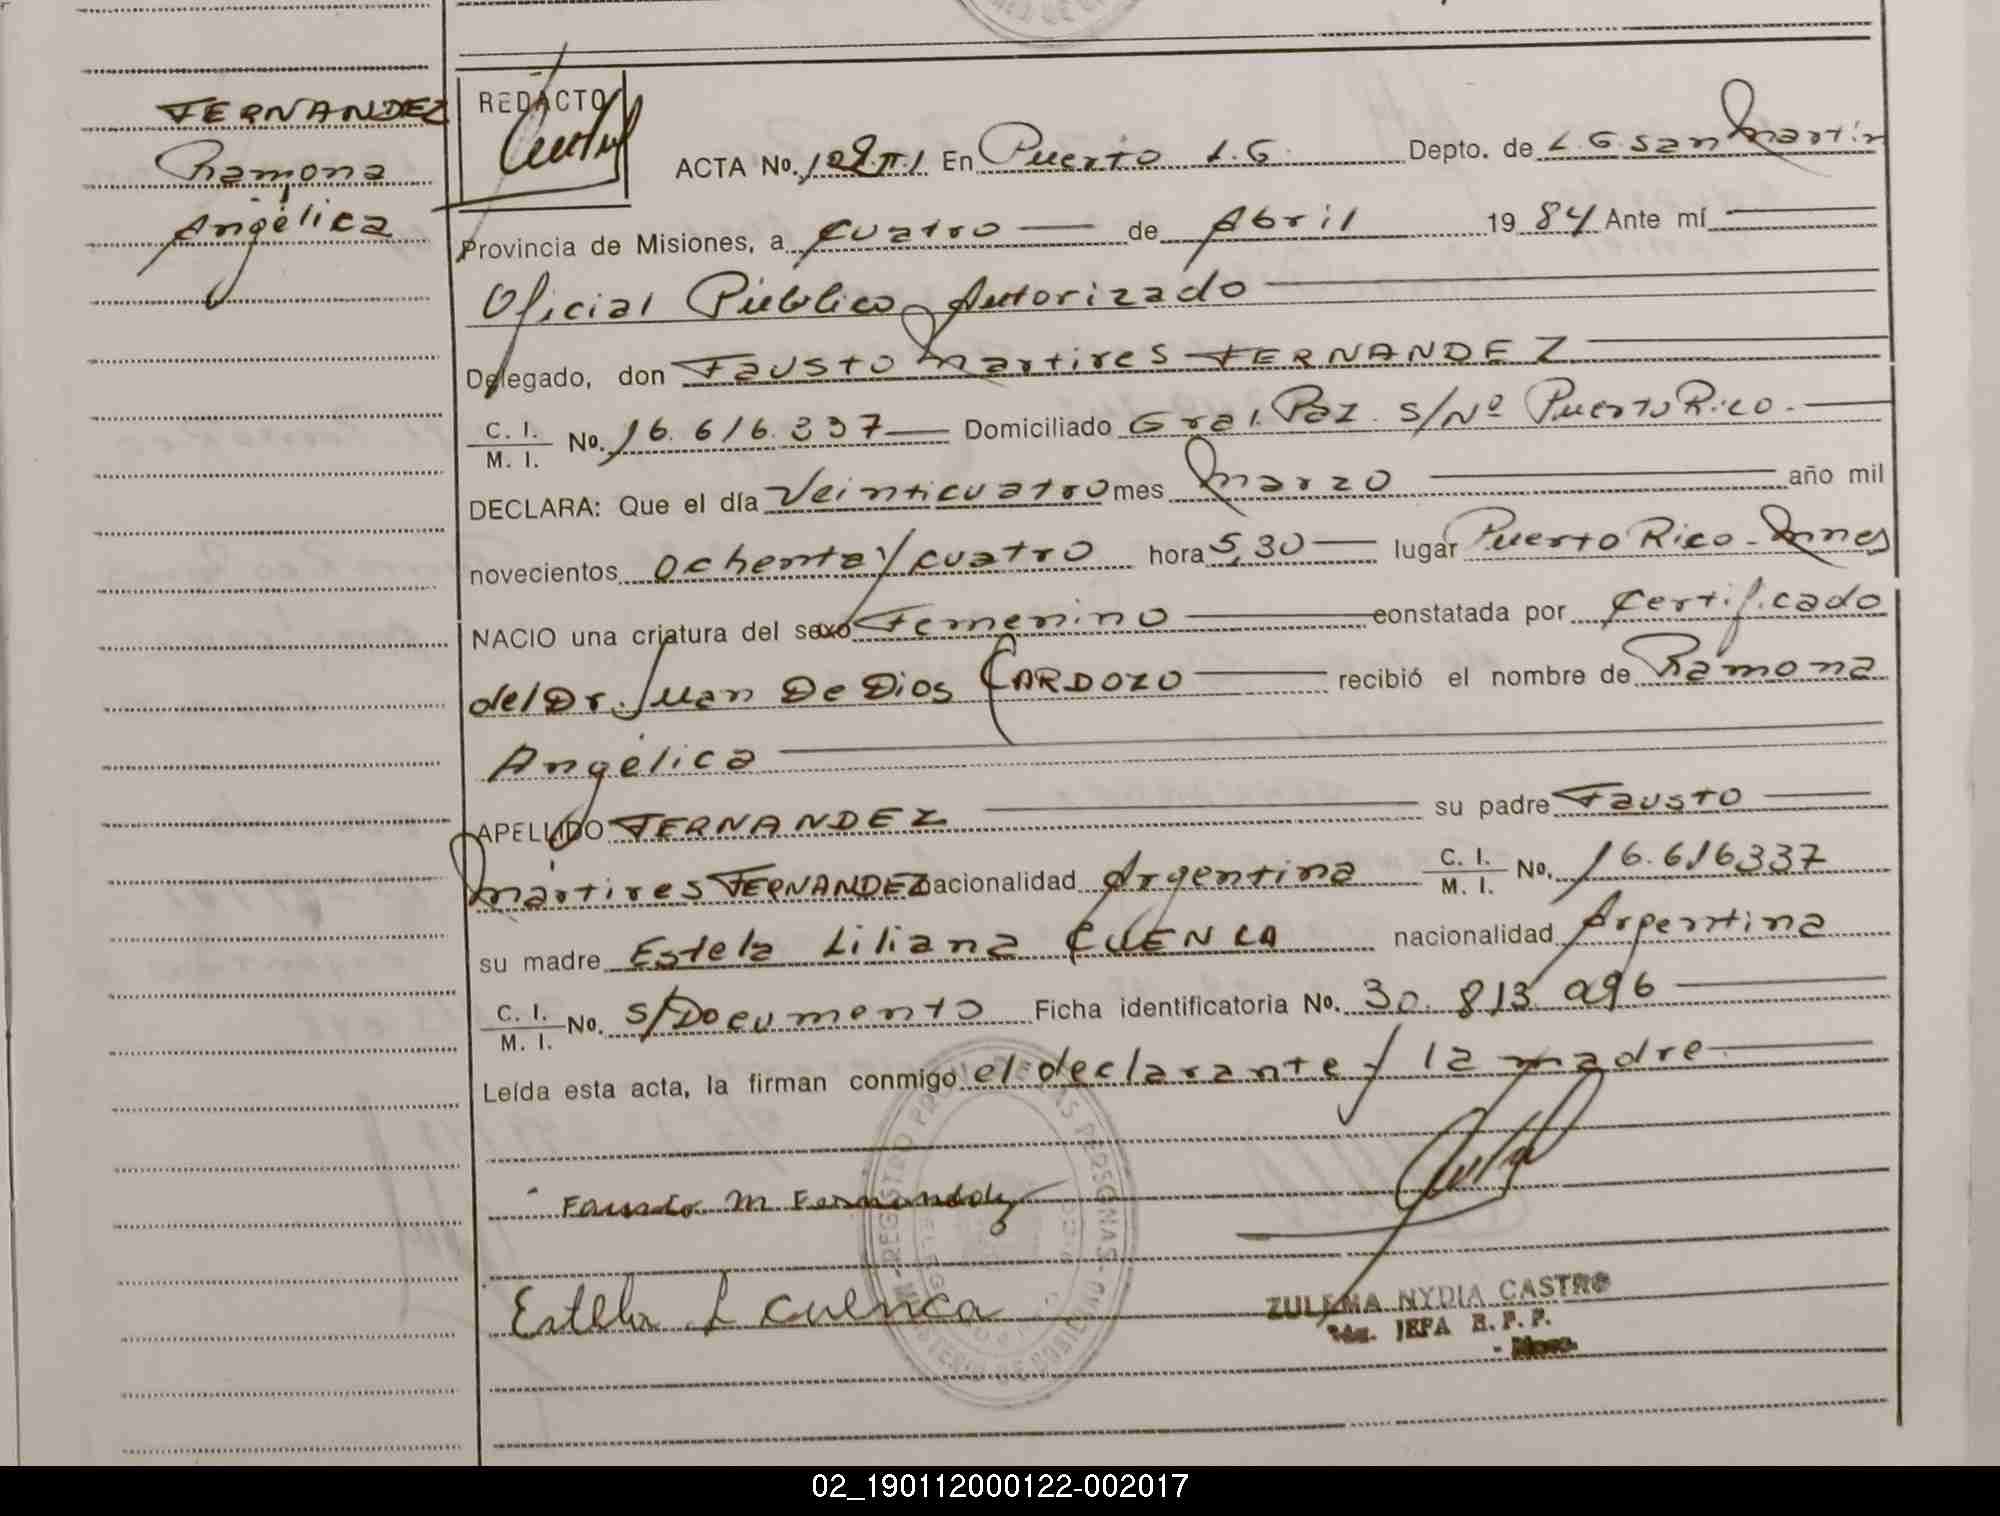 FERNANDEZ
Ramona
Angélica
REDACTO
ACTA No. 102.T.1 En Puerto L.G. Depto. de L.G.San Martín
Provincia de Misiones, a cuatro de Abril 1984 Ante mí
Oficial Público Autorizado
Delegado, don Fausto Martires FERNANDEZ
C. I.
M. I. No. 16.616.337 Domiciliado Gral. Paz. S/Nº Puerto Rico.
DECLARA: Que el día Veinticuatro mes Marzo año mil
novecientos ochenta y cuatro hora 5,30 lugar Puerto Rico-Mnes
NACIO una criatura del sexo Femenino constatada por certificado
del Dr. Juan De Dios CARDOZO recibió el nombre de Ramona
Angélica
APELLIDO FERNANDEZ su padre Fausto
Mártires FERNANDEZ nacionalidad Argentina C. I.
M. I. No. 16.616337
su madre Estela Liliana CUENCA nacionalidad Argentina
C. I.
M. I. No. S/Documento Ficha identificatoria No. 30.813.096
Leída esta acta, la firman conmigo el declarante y la madre
Fausto M Fernandez
Estela L Cuenca
ZULEMA NYDIA CASTRO
JEFA R. P. P.
02_190112000122-002017